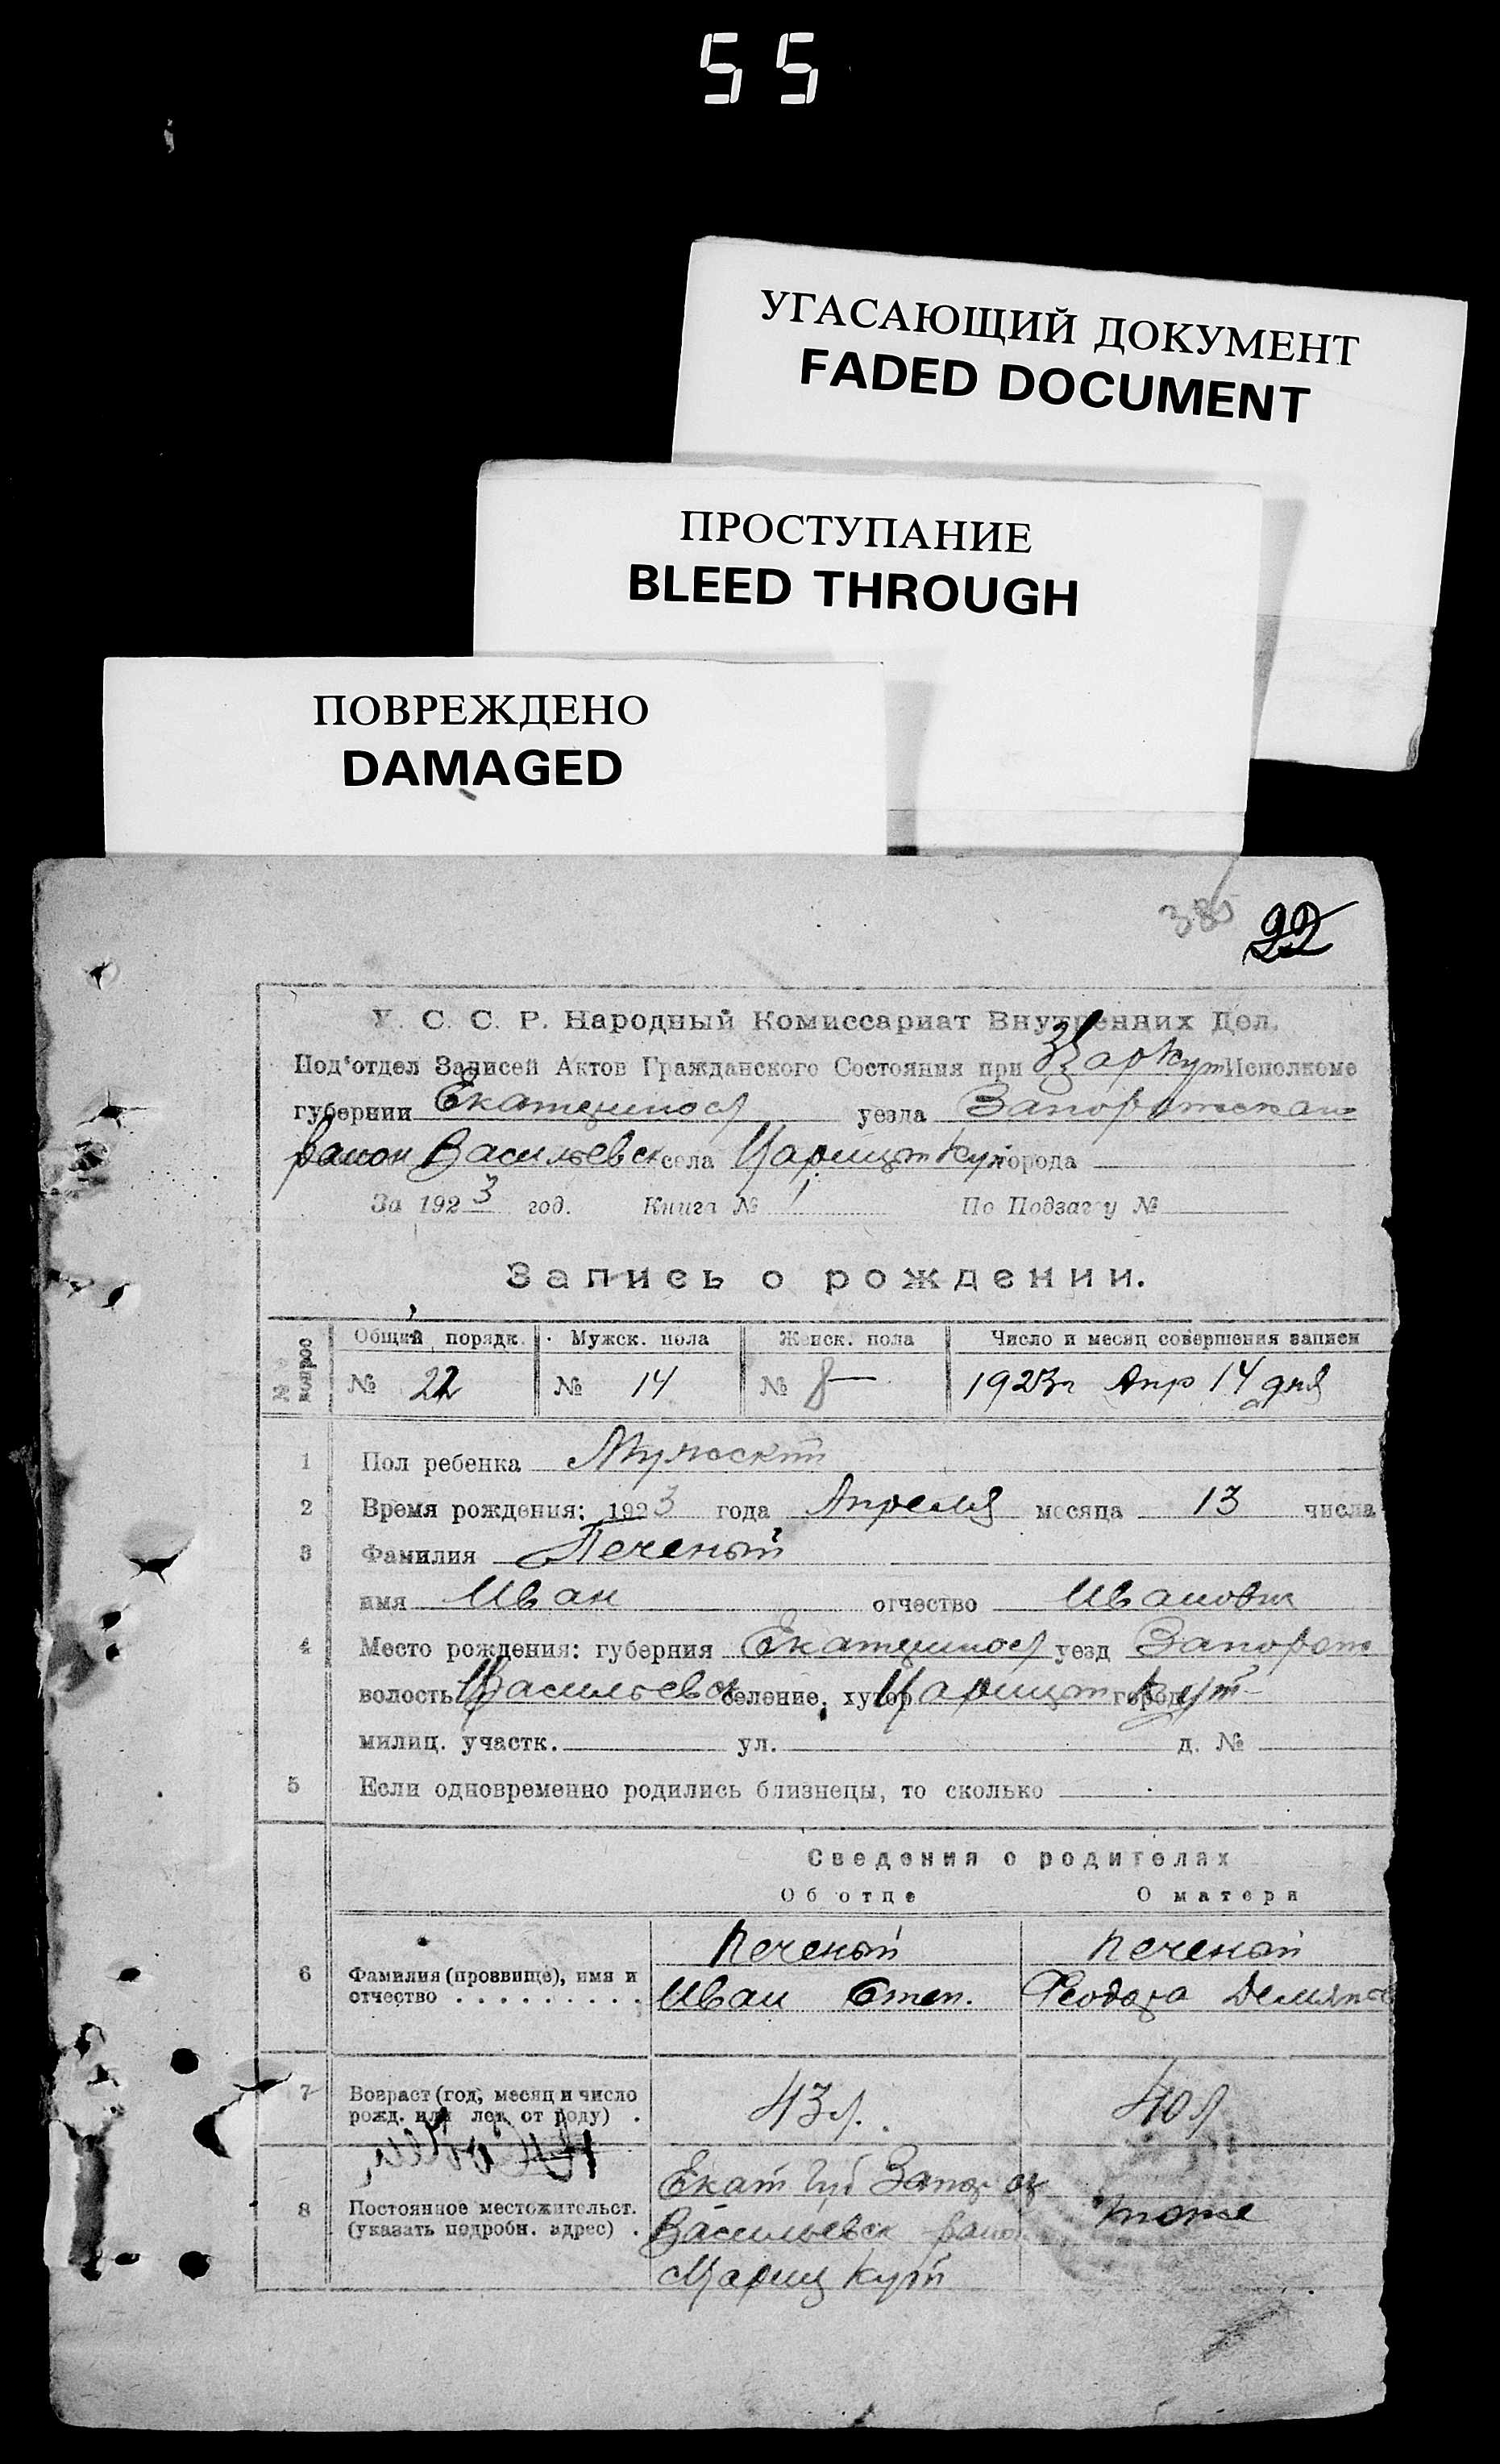 55
УГАСАЮЩИЙ ДОКУМЕНТ
FADED DOCUMENT
ПРОСТУПАНИЕ
BLEED THROUGH
ПОВРЕЖДЕНО
DAMAGED
385 22
У. С. С. Р. Народный Комиссариат Внутренних Дел.
Под'отдел Записей Актов Гражданского Состояния при Царкут Исполкоме
губернии Екатериносл уезда Запорожская
район Васильевск села Царицын Кут города
За 1923 год. Книга № 1 По Подзагсу №
Запись о рождении.
№№ вопрос Общий порядк. Мужск. пола Женск. пола Число и месяц совершения записи
№ 22 № 14 № 8— 1923г Апр 14 дня
1 Пол ребенка Мужской
2 Время рождения: 1923 года Апреля месяца 13 числа
3 Фамилия Печеный
имя Иван отчество Иванович
4 Место рождения: губерния Екатериносл уезд Запорож
волость Васильевск селение, хутор Царицын город Кут
милиц. участк. ул. д. №
5 Если одновременно родились близнецы, то сколько
Сведения о родителях
Об отце О матери
Печеный Печеный
6 Фамилия (прозвище), имя и
отчество . . . . . . . . . Иван Степ. Феодора Демьян
7 Возраст (год, месяц и число
рожд. или лет от роду) . 43 л. 40 л
Екат губ Запор
8 Постоянное местожительст.
(указать подробн. адрес) . Васильевск район тоже
Цариц Кут